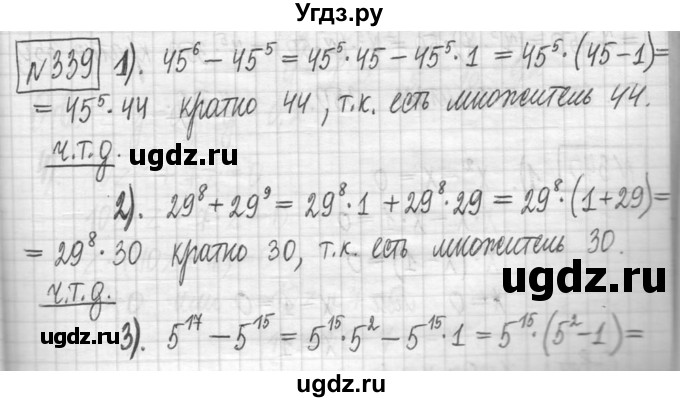 Угдз.ру
№339 1). 45⁶ - 45⁵ = 45⁵·45 - 45⁵·1 = 45⁵·(45-1)=
= 45⁵·44 кратно 44, т.к. есть множитель 44.
ч.т.д.
ugdz.ru
ugdz.ru
2). 29⁸ + 29⁹ = 29⁸·1 + 29⁸·29 = 29⁸·(1+29)=
= 29⁸·30 кратно 30, т.к. есть множитель 30.
ugdz.ru
ч.т.д.
ugdz.ru
3). 5¹⁷ - 5¹⁵ = 5¹⁵·5² - 5¹⁵·1 = 5¹⁵·(5²-1)=
ugdz.ru
ugdz.ru